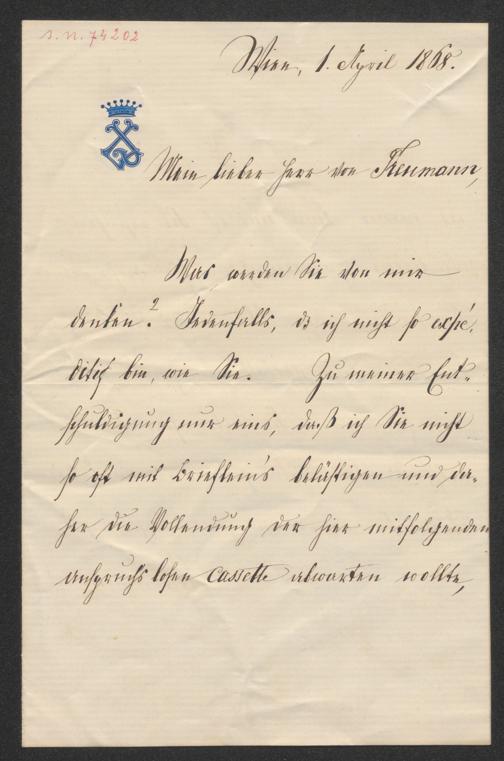 s. n. 74202
Wien, 1. April 1868.
Mein lieber Herr von Treumann,
Was werden Sie von mir
denken? Jedenfalls, daß ich nicht so expé-
ditif bin, wie Sie. Zu meiner Ent-
schuldigung nur eins, daß ich Sie nicht
so oft mit Brieflein's belästigen und da-
her die Vollendung der hier mitfolgenden
anspruchslosen Cassette abwarten wollte,